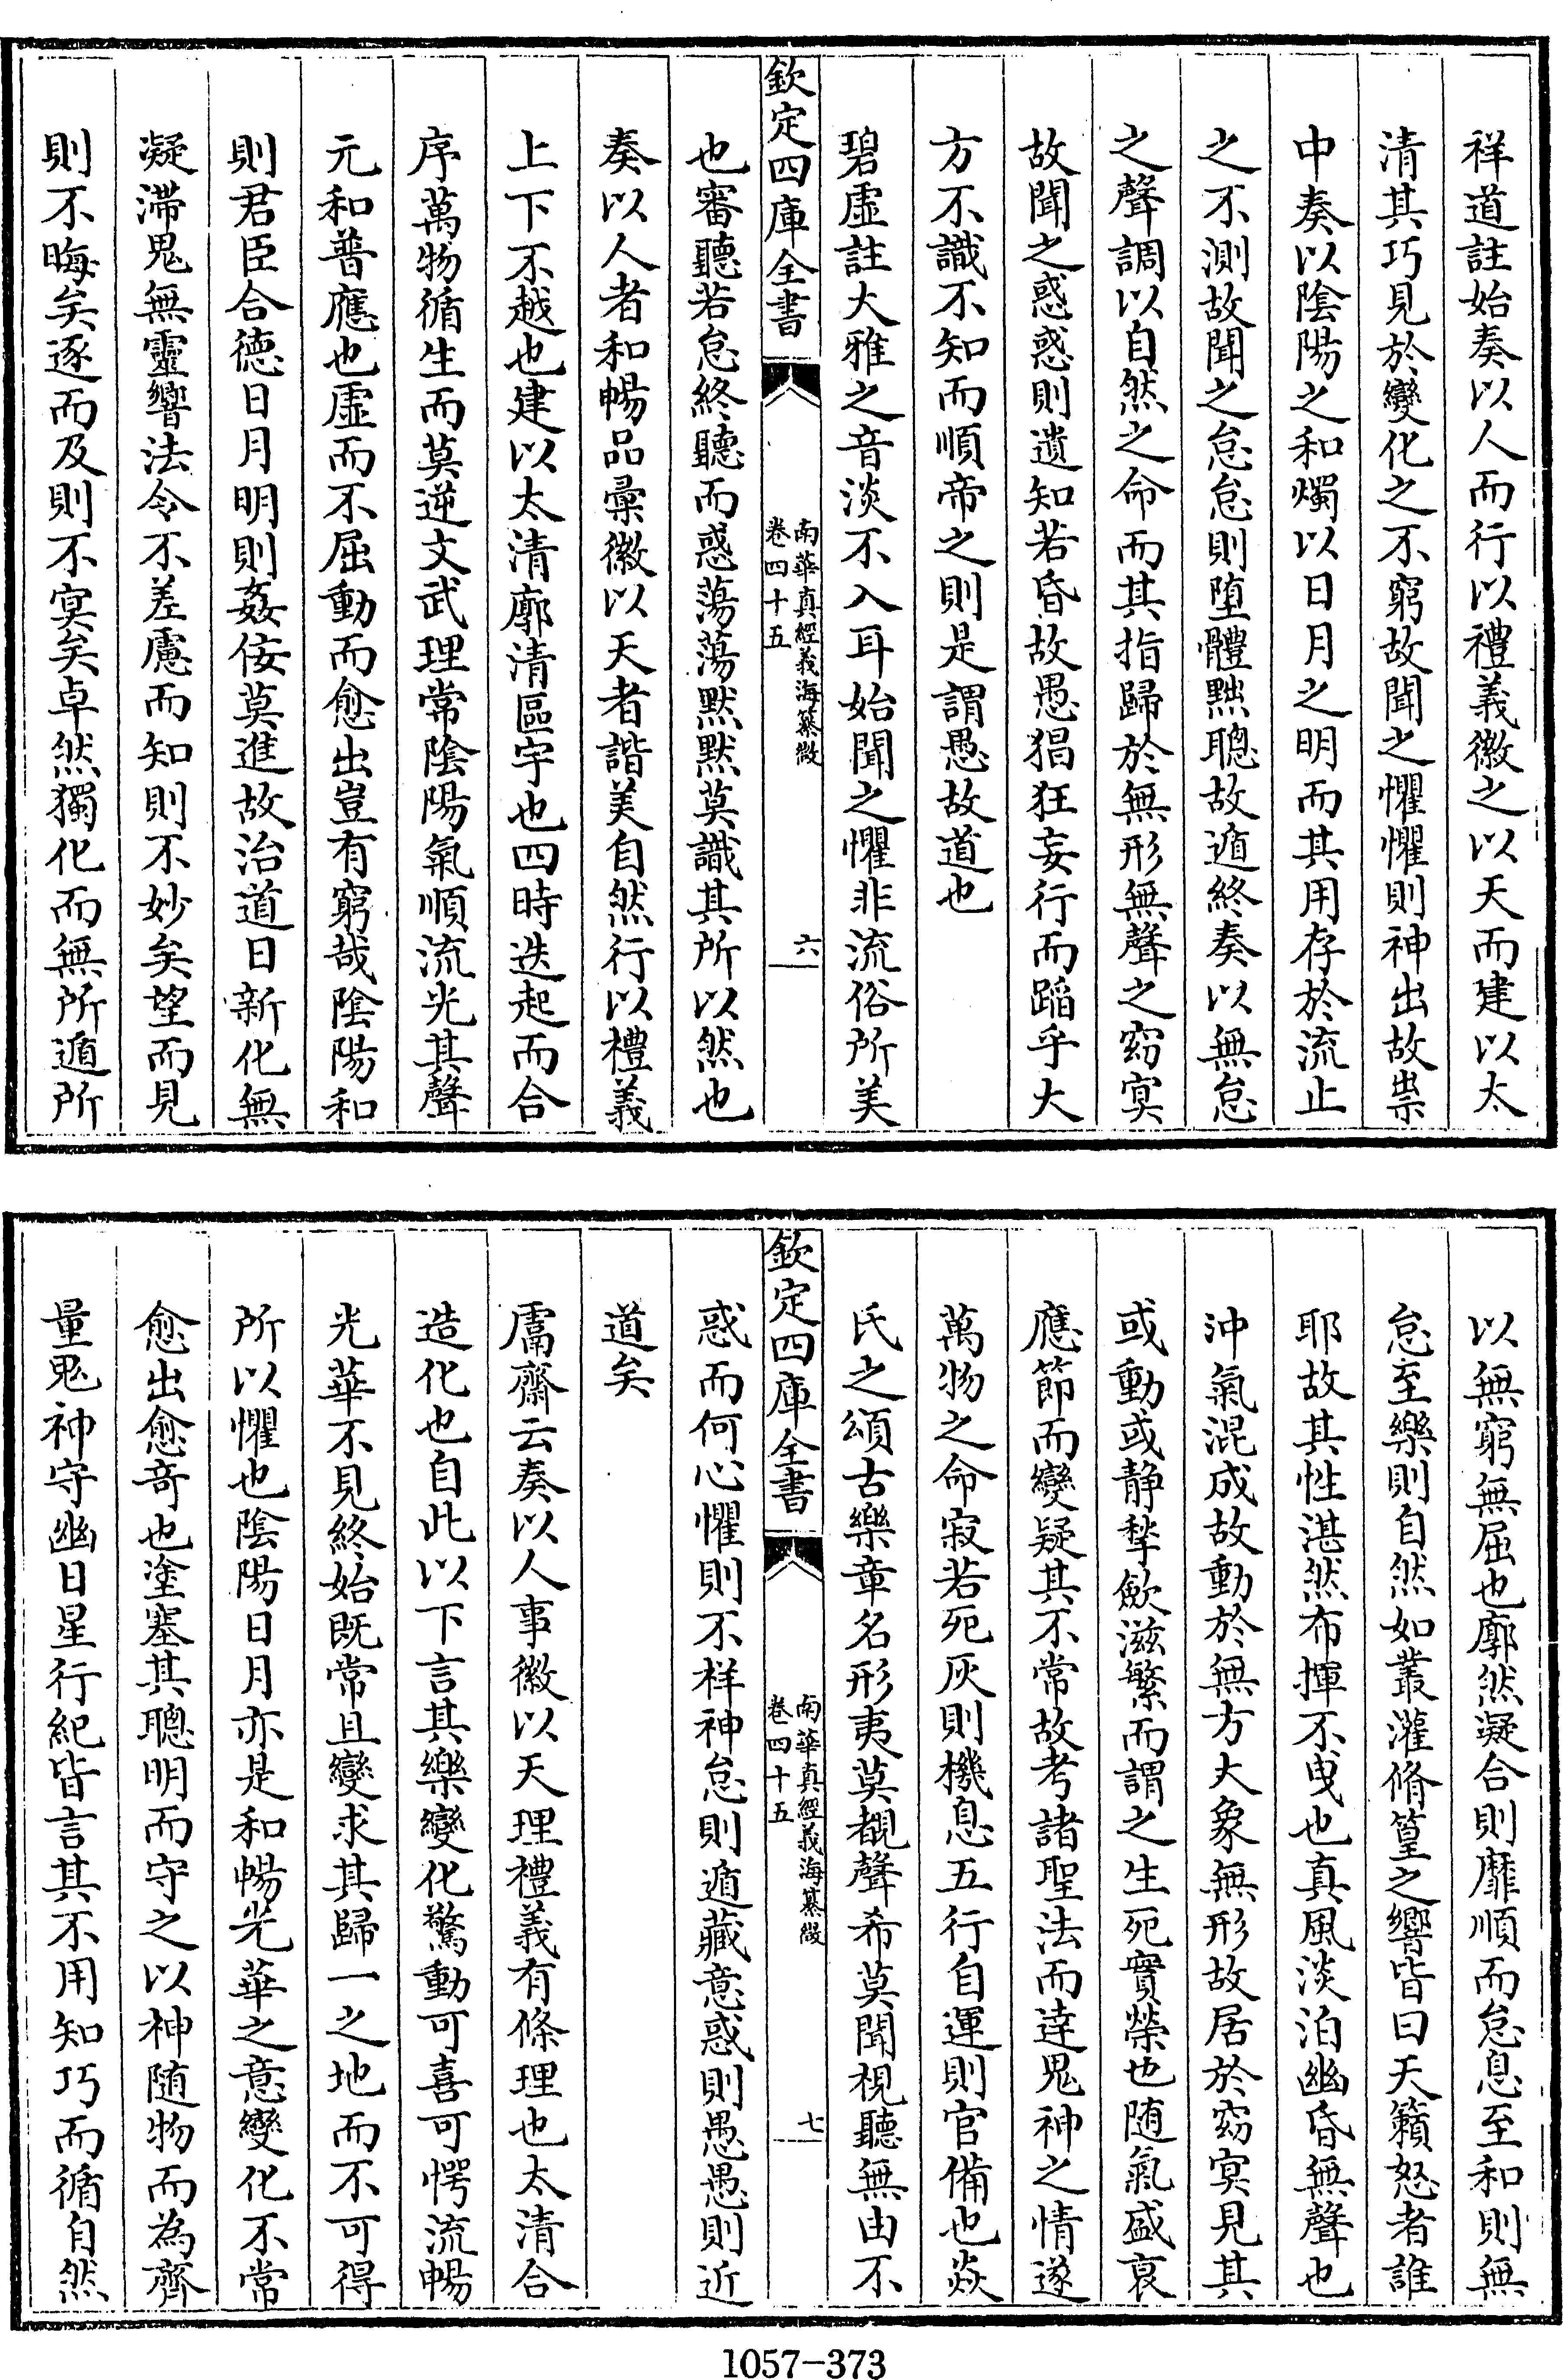 祥道註始奏以人而行以禮義徽之以天而建以太
清其巧見於變化之不窮故聞之懼懼則神出故祟
中奏以陰陽之和燭以日月之明而其用存於流止
之不測故聞之怠怠則墮體黜聰故遁終奏以無怠
之聲調以自然之命而其指歸於無形無聲之窈冥
故聞之惑惑則遺知若昏故愚猖狂妄行而蹈乎大
方不識不知而順帝之則是謂愚故道也
碧虛註大雅之音淡不入耳始聞之懼非流俗所美
欽定四庫全書
南華真經義海纂微
卷四十五
六
也審聽若怠終聽而惑蕩蕩默默莫識其所以然也
奏以人者和暢品彙徽以天者諧美自然行以禮義
上下不越也建以太清廓清區宇也四時迭起而合
序萬物循生而莫逆文武理常陰陽氣順流光其聲
元和普應也虛而不屈動而愈出豈有窮哉陰陽和
則君臣合德日月明則姦佞莫進故治道日新化無
凝滯鬼無靈響法令不差慮而知則不妙矣望而見
則不晦矣逐而及則不冥矣卓然獨化而無所遁所
以無窮無屈也廓然凝合則靡順而怠息至和則無
怠至樂則自然如叢灌脩篁之響皆曰天籟怒者誰
耶故其性湛然布揮不曳也真風淡泊幽昏無聲也
沖氣混成故動於無方大象無形故居於窈冥見其
或動或静摯歛滋繁而謂之生死實榮也随氣盛衰
應節而變疑其不常故考諸聖法而達鬼神之情遂
萬物之命寂若死灰則機息五行自運則官備也焱
氏之頌古樂章名形夷莫覩聲希莫聞視聽無由不
欽定四庫全書
南華真經義海纂微
卷四十五
七
惑而何心懼則不祥神怠則遁藏意惑則愚愚則近
道矣
鬳齋云奏以人事徽以天理禮義有條理也太清合
造化也自此以下言其樂變化驚動可喜可愕流暢
光華不見終始既常且變求其歸一之地而不可得
所以懼也陰陽日月亦是和暢光華之意變化不常
愈出愈奇也塗塞其聰明而守之以神随物而為齊
量鬼神守幽日星行紀皆言其不用知巧而循自然
1057-373